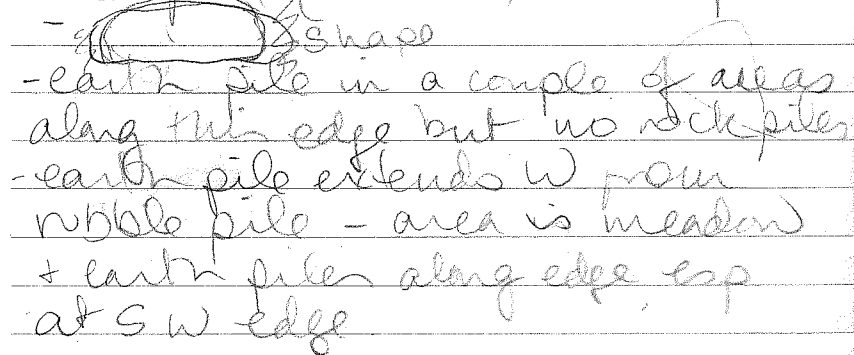 - shape
-earth pile in a couple of areas
along this edge but no rock piles
-earth pile extends W from
rubble pile - area is meadow
+ earth piles along edge esp
at SW edge